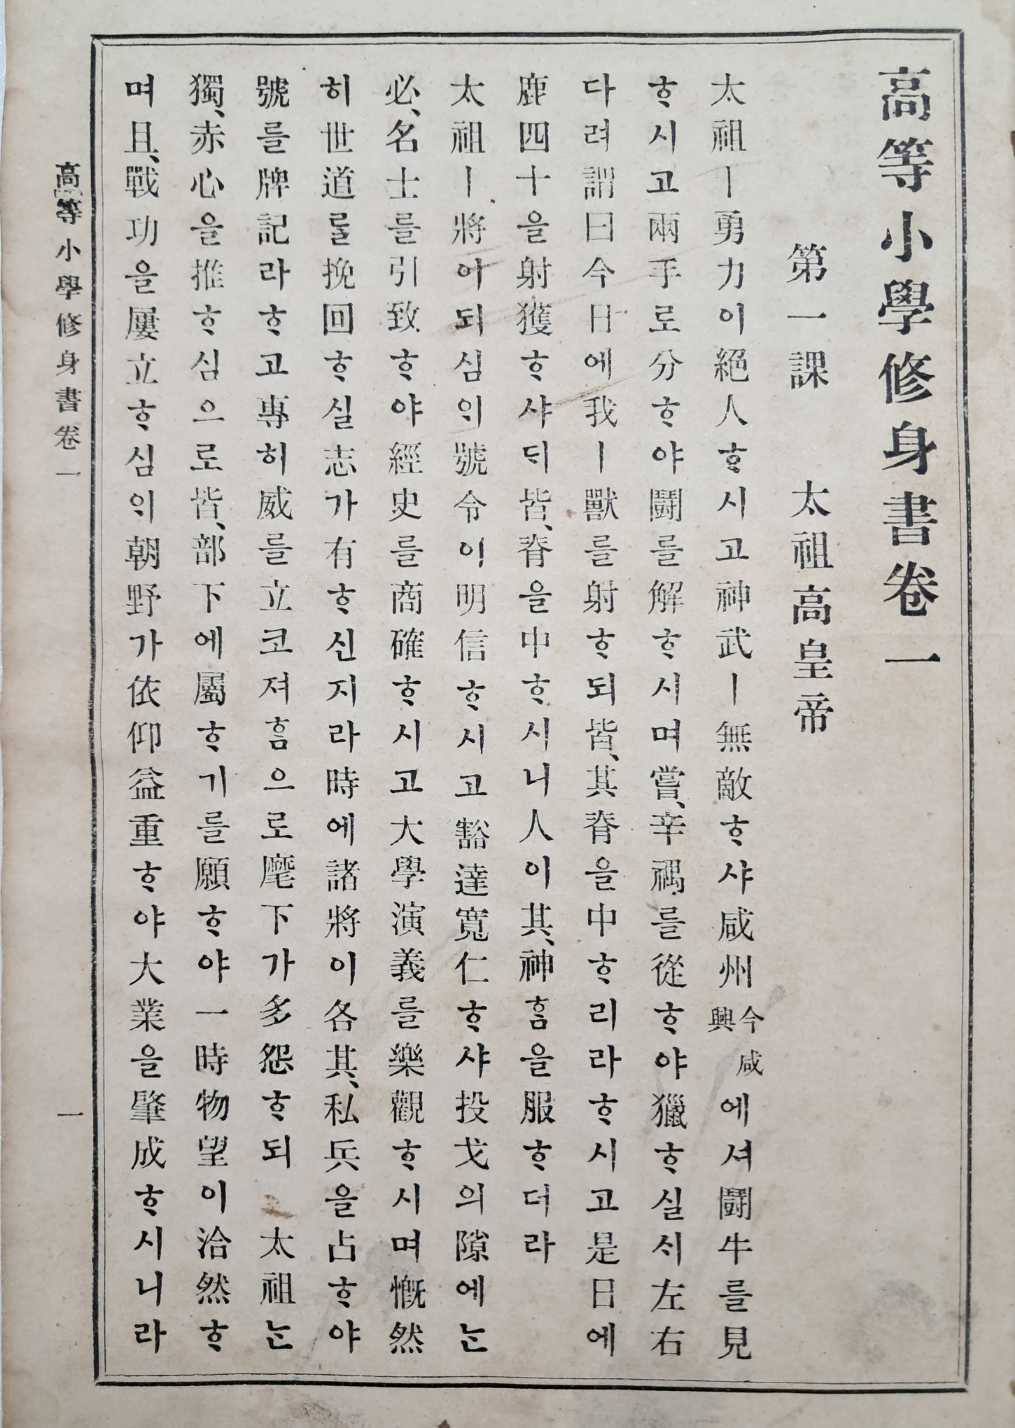 高等小學修身書卷一
第一課 太祖高皇帝
太祖ㅣ勇力이絕人ᄒᆞ시고神武ㅣ無敵ᄒᆞ샤咸州今咸興에셔鬪牛를見
ᄒᆞ시고兩手로分ᄒᆞ야鬪를解ᄒᆞ시며嘗、辛禑를從ᄒᆞ야獵ᄒᆞ실ᄉᆡ左右
다려謂曰今日에我ㅣ獸를射ᄒᆞ되皆、其脊을中ᄒᆞ리라ᄒᆞ시고是日에
鹿四十을射獲ᄒᆞ샤ᄃᆡ皆、脊을中ᄒᆞ시니人이其、神ᄒᆞᆷ을服ᄒᆞ더라
太祖ㅣ將이되심ᄋᆡ號令이明信ᄒᆞ시고豁達寬仁ᄒᆞ샤投戈의隙에ᄂᆞᆫ
必、名士를引致ᄒᆞ야經史를商確ᄒᆞ시고大學演義를樂觀ᄒᆞ시며慨然
히世道ᄅᆞᆯ挽回ᄒᆞ실志가有ᄒᆞ신지라時에諸將이各其、私兵을占ᄒᆞ야
號를牌記라ᄒᆞ고專히威를立코져ᄒᆞᆷ으로麾下가多怨ᄒᆞ되 太祖ᄂᆞᆫ
獨、赤心을推ᄒᆞ심으로皆、部下에屬ᄒᆞ기를願ᄒᆞ야一時物望이洽然ᄒᆞ
며且、戰功을屢立ᄒᆞ심ᄋᆡ朝野가依仰益重ᄒᆞ야大業을肇成ᄒᆞ시니라
高等小學修身書卷一
一